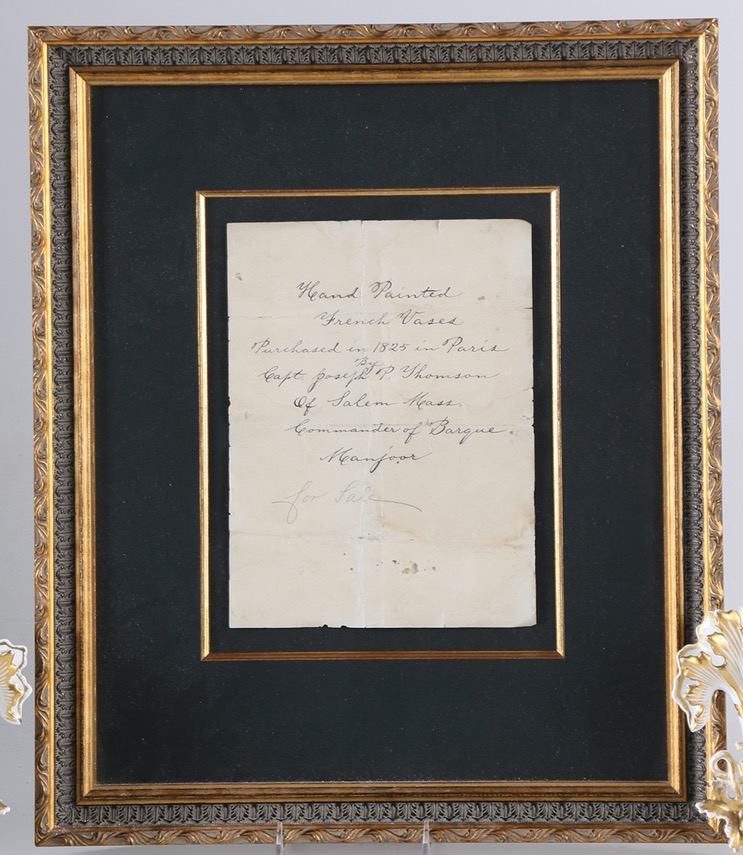 Hand Painted
French Vases
Purchased in 1825 in Paris
By
Capt. Joseph P. Thomson
Of Salem Mass.
Commander of Barque
Manjoor
for Sale